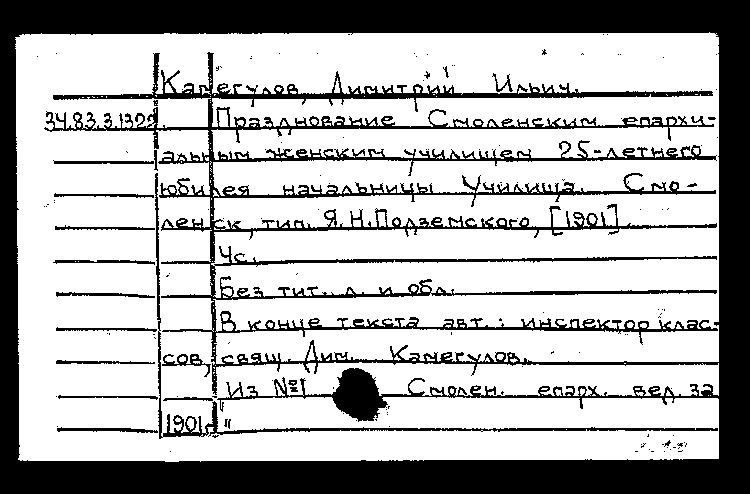 Камегулов, Димитрий Ильич.
34.83.3.1322. Празднование Смоленским епархи-
альным женским училищем 25-летнего
юбилея начальницы Училища. Смо-
ленск, тип. Я.Н.Подземского, [1901]
4с.
Без тит. л. и обл.
В конце текста авт.: инспектор клас-
сов, свящ. Дим. Камегулов.
"Из №1 Смолен. епарх. вед. за
1901г."